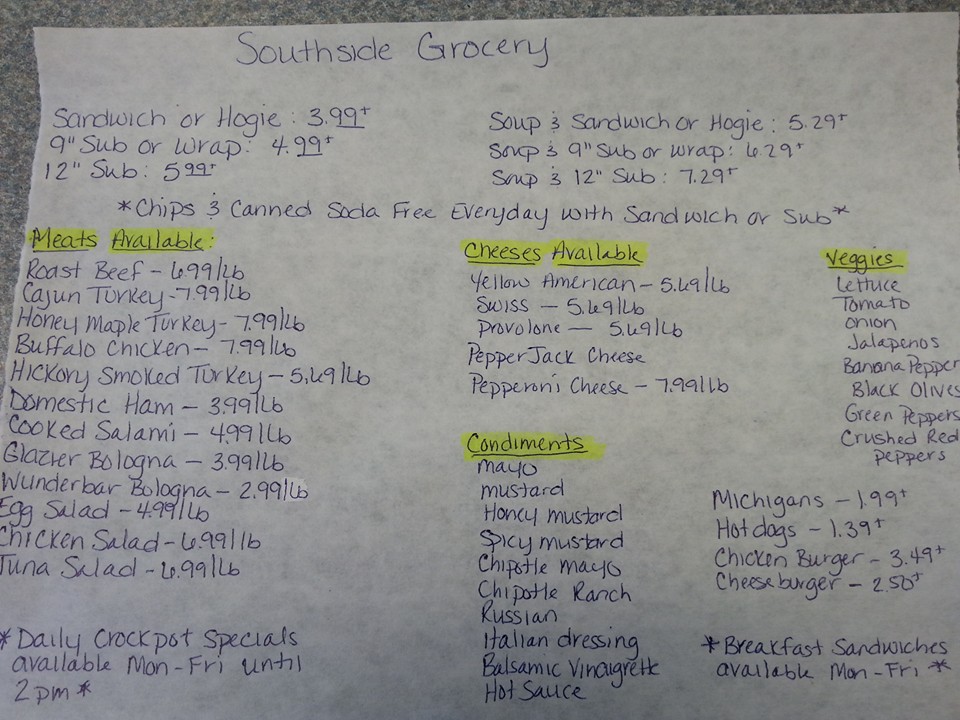 Southside Grocery
Sandwich or Hogie: 3.99+
9" Sub or Wrap: 4.99+
12" Sub: 5.99+
Soup & Sandwich or Hogie: 5.29+
Soup & 9" Sub or Wrap: 6.29+
Soup & 12" Sub: 7.29+
*Chips & Canned Soda Free Everyday with Sandwich or Sub*
Meats Available:
Roast Beef - 6.99/Lb
Cajun Turkey - 7.99/Lb
Honey Maple Turkey - 7.99/Lb
Buffalo Chicken - 7.99/Lb
Hickory Smoked Turkey - 5.69/Lb
Domestic Ham - 3.99/Lb
Cooked Salami - 4.99/Lb
Glazier Bologna - 3.99/Lb
Wunderbar Bologna - 2.99/Lb
Egg Salad - 4.99/Lb
Chicken Salad - 6.99/Lb
Tuna Salad - 6.99/Lb
*Daily Crockpot Specials
available Mon-Fri until
2pm*
Cheeses Available
Yellow American - 5.69/Lb
Swiss - 5.69/Lb
Provolone - 5.69/Lb
Pepper Jack Cheese
Pepperoni Cheese - 7.99/Lb
Condiments
mayo
mustard
Honey mustard
Spicy mustard
Chipotle mayo
Chipotle Ranch
Russian
Italian dressing
Balsamic Vinaigrette
Hot Sauce
Veggies
Lettuce
Tomato
onion
Jalapenos
Banana Pepper
Black Olives
Green Peppers
Crushed Red
peppers
Michigans - 1.99+
Hotdogs - 1.39+
Chicken Burger - 3.49+
Cheeseburger - 2.50+
*Breakfast Sandwiches
available Mon-Fri*